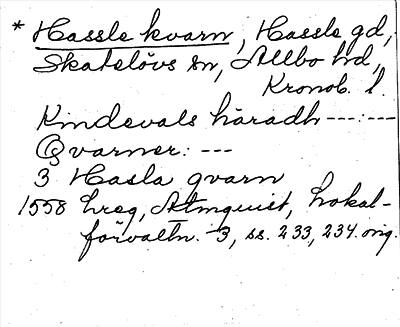 * Hassle kvarn, Hassle gd,
Skatelövs sn, Allbo hd,
Kronob. l.
Kindevals häradh ---:---
Qvarner: ---
3 Hasla qvarn
1558 hreg, Almquist, Lokal-
förvaltn. 3, ss. 233, 234. orig.